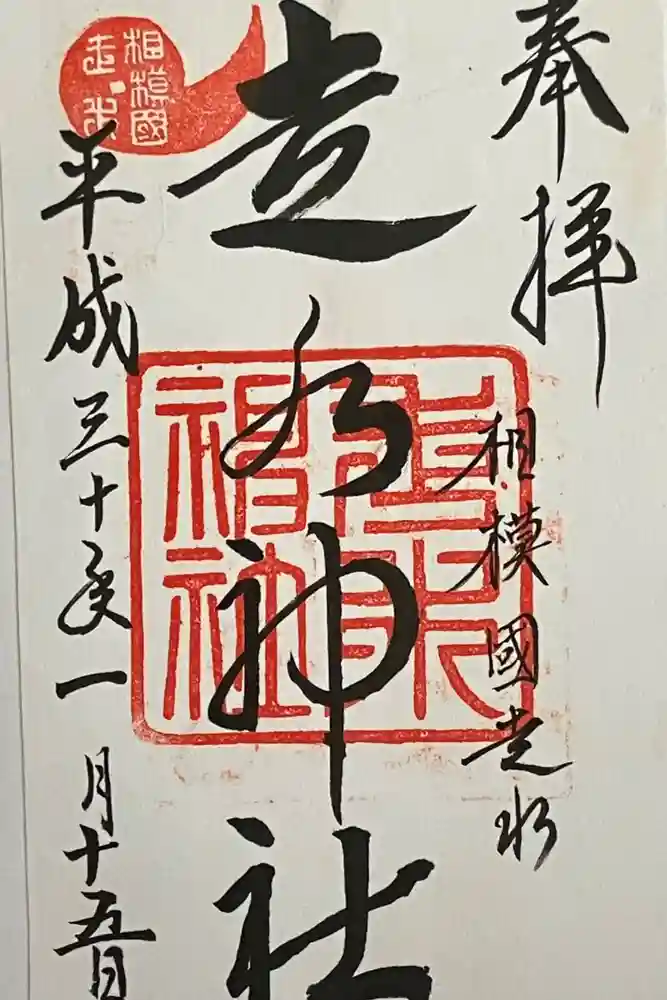 奉拝
相模國走水
走水神社
走水神社
平成三十年一月十五日
相模國
走水